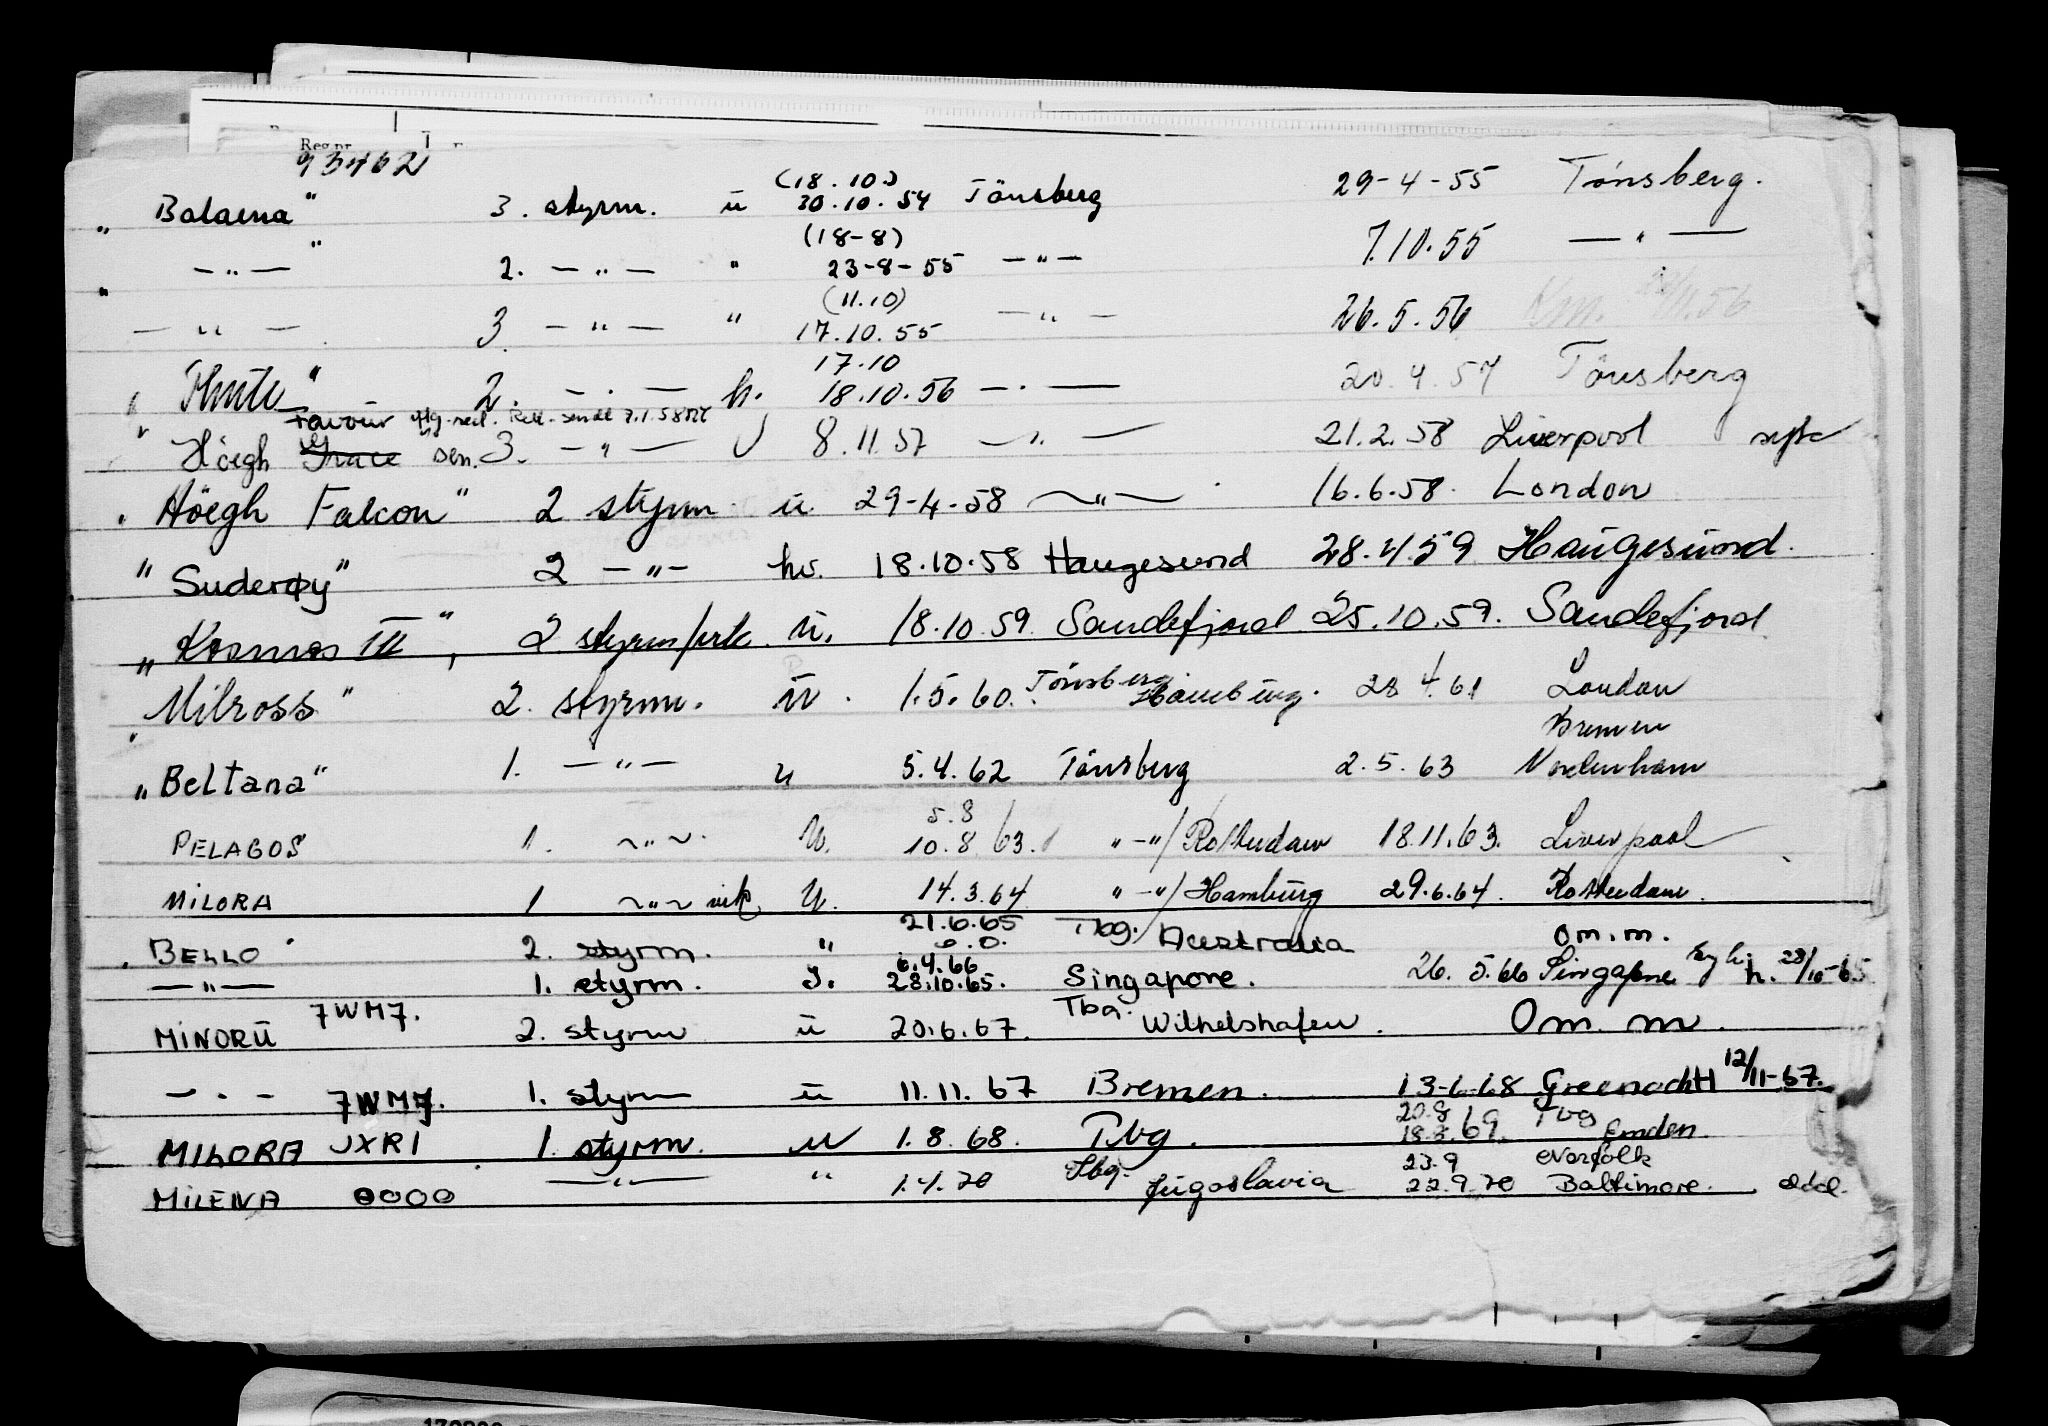 Reg.nr.
93462
" Balaena" 3. styrm. u (18.10.) 30.10.54 Tönsberg 29-4-55 Tönsberg.
" —"— " 2. —"— " (18-8) 23-8-55 —"— 7.10.55 —"—
—"— 3. —"— " (11.10) 17.10.55 —"— 26.5.56
" " 2. —"— h. 17.10 18.10.56 —"— 20.4.57 Tönsberg
Favour
" Höegh Grace 3. —"— 8.11.57 —"— 21.2.58 Liverpool syk
" Höegh Falcon" 2 styrm u 29-4-58 —"— 16.6.58. London
" Suderøy" 2 —"— hv. 18.10.58 Haugesund 28.4.59 Haugesund.
" Kosmos III", 2 styrm/vik. u. 18.10.59 Sandefjord 25.10.59. Sandefjord
" Milross" 2. styrm. u. 1.5.60. Tönsberg Hamburg. 28.4.61 London
Bremen
" Beltana" 1. —"— u 5.4.62 Tönsberg 2.5.63 Nordenham
PELAGOS 1. ~"~ u. 5.8 10.8.63. "-"/Rotterdam 18.11.63. Liverpool
MILORA 1 ~"~ vik u. 14.3.64 "-"/Hamburg 29.6.64. Rotterdam.
" BELLO" 2. styrm. " 21.6.65 Tbg. Australia om.m.
—"— 1. styrm. 6.4.66 28.10.65. Singapore. 26.5.66 Singapore h. 28/10-65
MINORU 7WM7. 2. styrm u 20.6.67. Tbg. Wilhelshafen. Om. m.
— . — 7WM7. 1. styrm u 11.11.67 Bremen. 13-6-68 Greenock H 12/11-67.
MILORA JXRI 1. styrm. u 1.8.68. Tbg. 20.8 18.8.69. Tbg Emden.
MILENA 0000 —"— " 1.4.70 Tbg. Jugoslavia 23.9 22.9.70 Norfolk Baltimore.